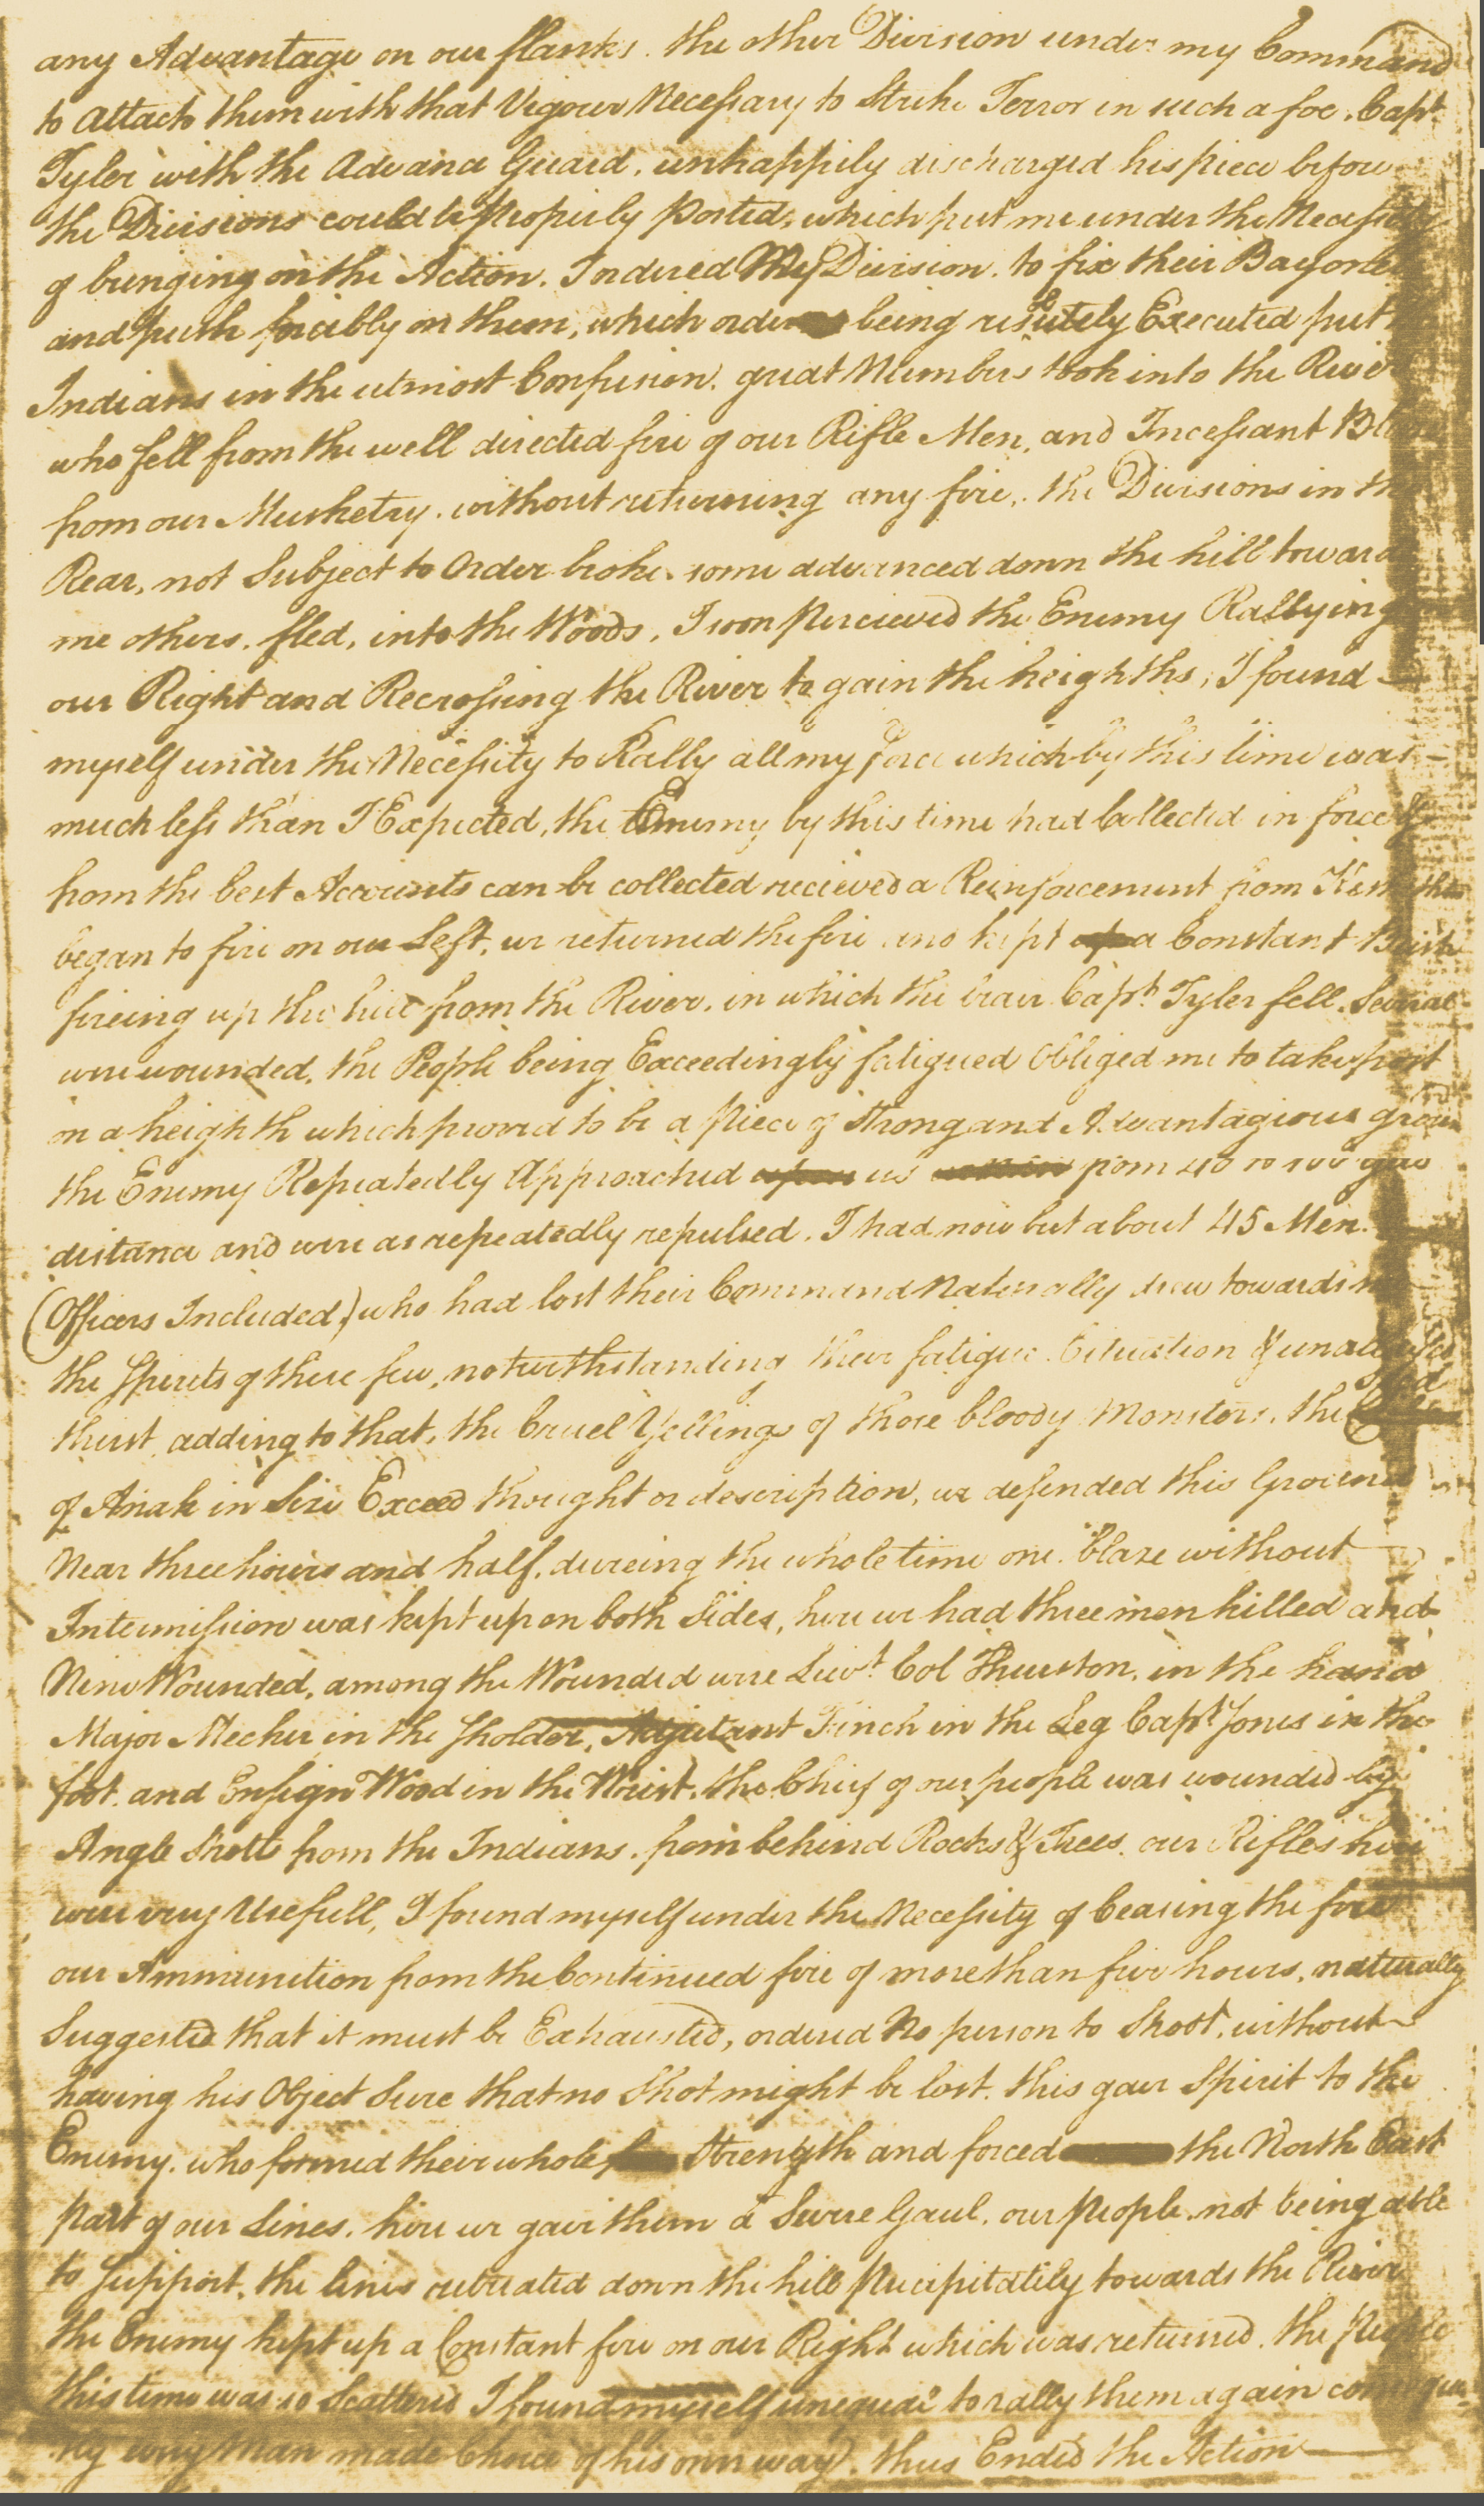 any Advantage on our flanks. the other Division under my Command
to attack them with that Vigour Necessary to Strike Terror in such a foe. Capt.
Tyler with the Advance Guard, unhappily discharged his piece before
the Divisions could be properly posted, which put me under the Necessity
of bringing on the Action. I ordered My Division to fix their Bayonets
and push forcibly on them, which order being resolutely Executed put
Indians in the utmost Confusion. great Numbers took into the River
who fell from the well directed fire of our Rifle Men, and Incessant
from our Musketry. without returning any fire. the Divisions in the
Rear, not Subject to Order broke some advanced down the hill towards
me others. fled, into the Woods, I soon Percieved the Enemy Rallying
our Right and Recrossing the River to gain the heighths, I found
myself under the Necessity to Rally all my force which by this time was
much less than I Expected, the Enemy by this time had Collected in force &
from the best Accounts can be collected recieved a Reinforcement from
began to fire on our Left, we returned the fire and kept up a Constant
fireing up the hill from the River. in which the brave Capt. Tyler fell. Several
were wounded. the People being Exceedingly fatigued Obliged me to take post
on a heighth which proved to be a Piece of Strong and Advantagious
the Enemy Repeatedly Approached upon us from 40 to 100 yds
distance and were as repeatedly repulsed. I had now but about 45 Men.
(Officers Included) who had lost their Command Naturally drew towards me
the Spirits of these few, notwithstanding their fatigue. Cituation &
thirst adding to that, the Cruel Yellings of those bloody Monsters, the Seed
of Anak in Size Exceed thought or description, we defended this Ground
Near three hours and half. dureing the whole time one blaze without
Intermission was kept up on both Sides, here we had three men killed and
Nine Wounded, among the Wounded were Lieut. Col Thurston, in the hand
Major Mecker in the Sholder, Adjutant Finch in the Leg Capt. Jones in the
foot. and Ensign Wood in the Wrist, the Chief of our people was wounded by
Angle Shotts from the Indians. from behind Rocks & Trees. our Rifles here
were very Usefull, I found myself under the Necessity of Ceasing the fire
our Ammunition from the Continued fire of more than five hours, naturally
Suggested that it must be Exhausted, ordered No person to Shoot, without
having his Object Sure that no Shot might be lost. this gave Spirit to the
Enemy. who formed their whole Strength and forced the North East
Part of our Lines. here we gave them a Severe Gaul. our People not being able
to Support. the lines retreated down the hill Precipitately towards the River
the Enemy kept up a Constant fire on our Right which was returned. the People
this time was so Scattered I found myself unequal to rally them again consequen
tly every Man made Choice of his own way. thus Ended the Action